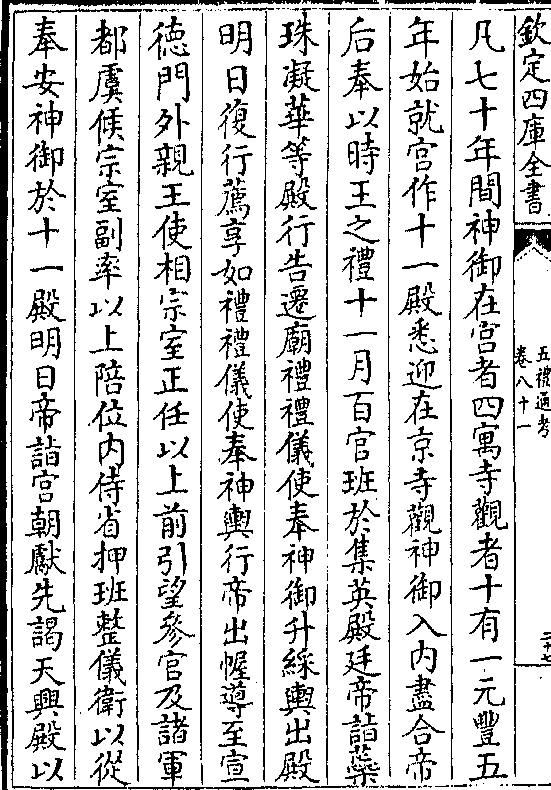 欽定四庫全書
五禮通考
卷八十一
凡七十年間神御在宫者四寓寺觀者十有一元豐五
年始就宫作十一殿悉迎在京寺觀神御入内盡合帝
后奉以時王之禮十一月百官班於集英殿廷帝詣蘂
珠凝華等殿行告遷廟禮禮儀使奉神御升綵輿出殿
明日復行薦享如禮禮儀使奉神輿行帝出幄導至宣
德門外親王使相宗室正任以上前引望參官及諸軍
都虞候宗室副率以上陪位内侍省押班整儀衛以從
奉安神御於十一殿明日帝詣宫朝獻先謁天興殿以